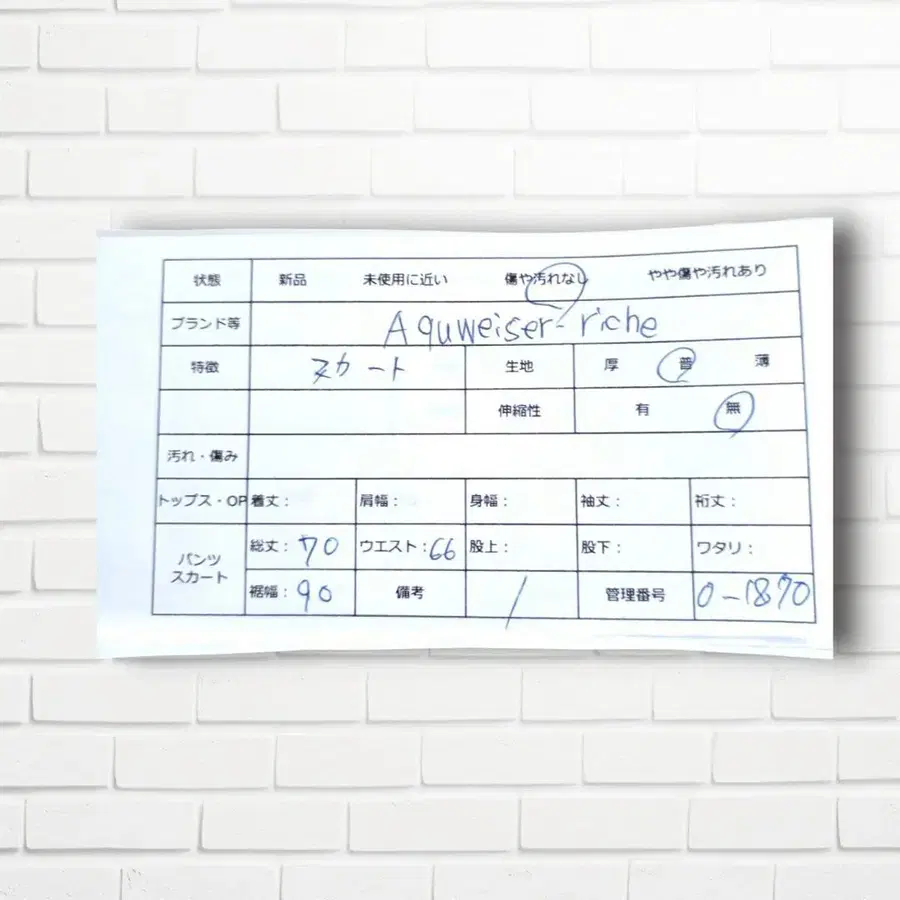 状態 新品 未使用に近い 傷や汚れなし やや傷や汚れあり
ブランド等 Aquweiser-riche
特徴 スカート 生地 厚 普 薄
伸縮性 有 無
汚れ・傷み
トップス・OP 着丈: 肩幅: 身幅: 袖丈: 裄丈:
パンツ スカート 総丈:70 ウエスト:66 股上: 股下: ワタリ:
裾幅:90 備考 / 管理番号 0-1870